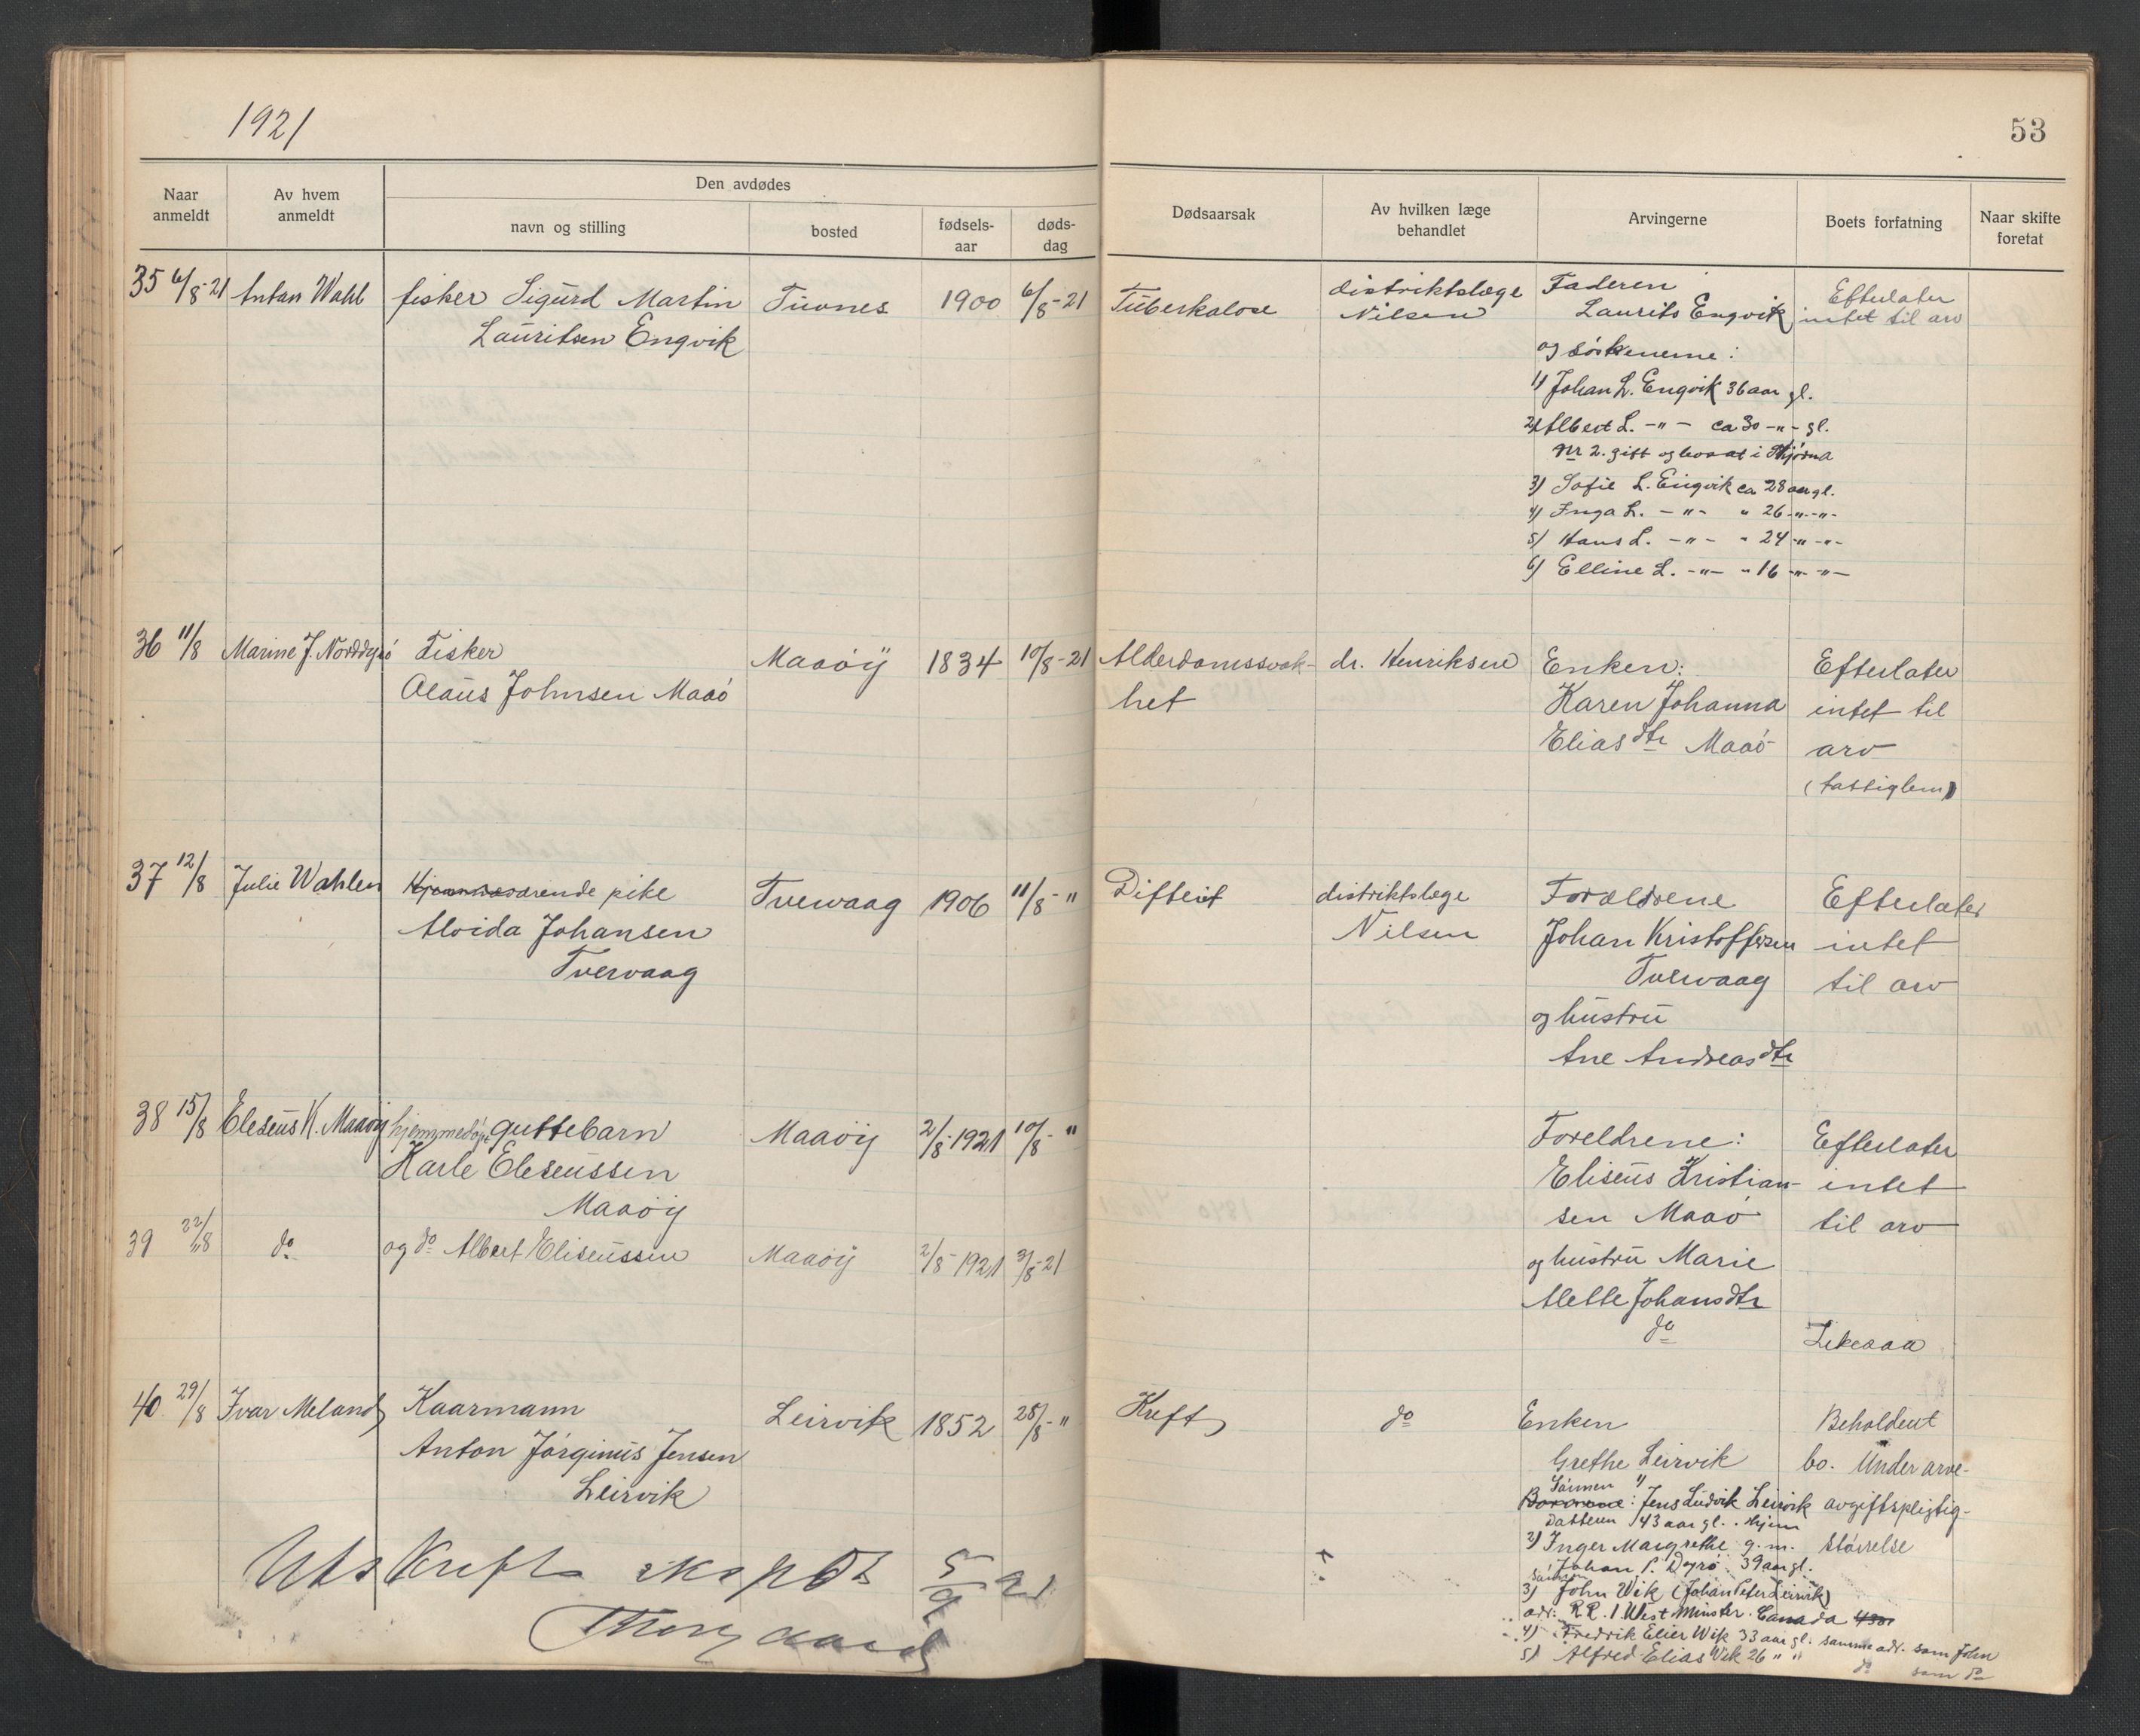 1921
53
Naar anmeldt
Av hvem anmeldt
Den avdødes
navn og stilling
bosted
fødsels-aar
døds-dag
Dødsaarsak
Av hvilken læge behandlet
Arvingerne
Boets forfatning
Naar skifte foretat
35 6/8-21 Anton Wahl fisker Sigurd Martin Tuvnes 1900 6/8-21 Tuberkulose distriktslæge Faderen Efterlater
Lauritsen Engvik Nilsen Laurits Engvik intet til arv
og søskenerne:
1) Johan L. Engvik 36 aar gl.
2) Albert L. -"- ca 30 -"- gl.
Nr 2. gift og bosat i
3) Sofie L. Engvik ca 28 aar gl.
4) Inga L. -"- " 26 -"- -"-
5) Hans L. -"- " 24 -"- -"-
6) Elline L. -"- " 16 -"- -"-
36 11/8 Marine J. Norddyrø Fisker Maaøy 1834 10/8-21 Alderdomssvak- dr. Henriksen Enken: Efterlater
Olaus Johnsen Maaø het Karen Johanna intet til
Elias dtr Maaø arv
(fattiglem)
37 12/8 Julie Wahlen Hjemmeværende pike Tvervaag 1906 11/8-" Difterit distriktslæge Forældrene Efterlater
Alvida Johansen Nilsen Johan Kristoffersen intet
Tvervaag Tvervaag til arv
og hustru
Ane Andreas dtr
38 15/8 Eleseus K. Maaøy hjemmedøpt guttebarn Maaøy 2/8-1921 10/8-" Foreldrene: Efterlater
Karle Eleseussen Eliseus Kristian- intet
Maaøy sen Maaø til arv
39 22/8 do og do Albert Eliseussen Maaøy 2/8-1921 3/8-21 og hustru Marie
Alette Johansdtr
do Likesaa
40 29/8 Ivar Meland Kaarmann Leirvik 1852 28/8-" Kreft do Enken Beholdent
Anton Jørginus Jensen Grethe Leirvik bo. Under arve-
Leirvik Sønnen 1) Jens Ludvik Leirvik avgiftspligtig-
Datteren 43 aar gl. . Hjem
2) Inger Margrethe g. m. størrelse
Johan P. Dyrø 39 aar gl.
sønnen
3) John Wik (Johan Peter Leirvik)
adr: R R. 1 West Minster. Canada
4) Fredrik Elier Wik 33 aar gl. samme adr. som John
5) Alfred Elias Wik 26 " " do som do
Utskrift skapt 5/9 21